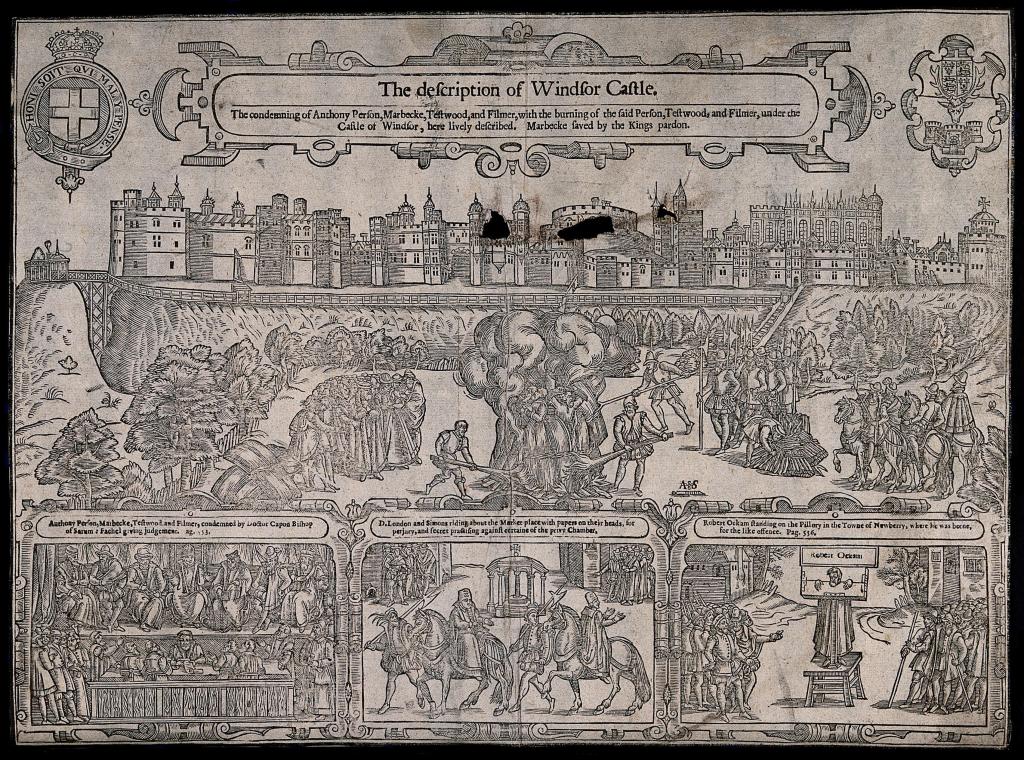 HONI SOIT QVI MAL Y PENSE
The description of Windsor Castle.
The condemning of Anthony Person, Marbecke, Testwood, and Filmer, with the burning of the said Person, Testwood, and Filmer, under the
Castle of Windsor, here lively described. Marbecke saved by the Kings pardon.
Anthony Person, Marbecke, Testwood and Filmer, condemned by Doctor Capon Bishop
of Sarum: Fachel giving judgement.
D. London and Simons riding about the Market place with papers on their heads, for
perjury, and secret practising against certaine of the privy Chamber,
Robert Ockam standing on the Pillory in the Towne of Newberry, where he was borne,
for the like offence. Pag. 556.
Robert Ockam